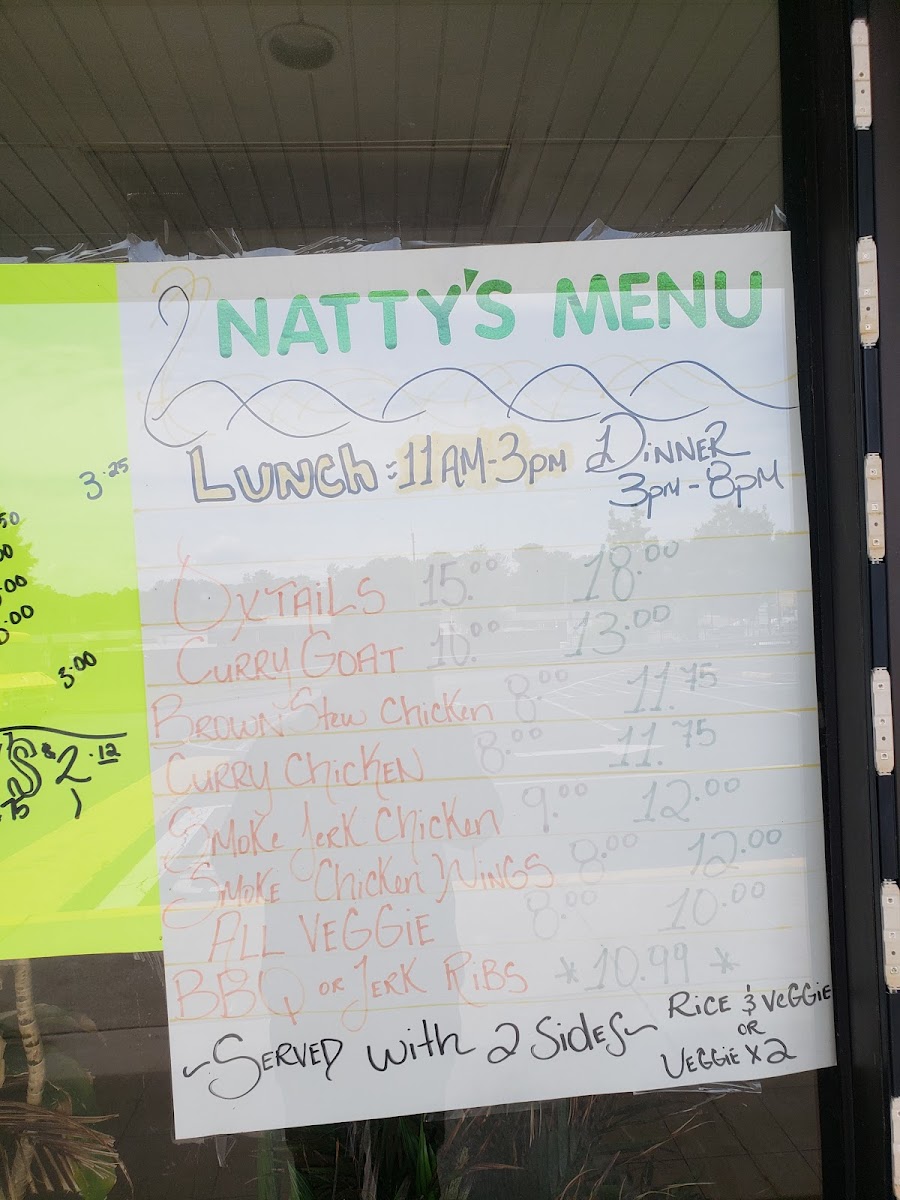 NATTY'S MENU
LUNCH = 11AM-3PM DINNER
3PM - 8PM
OXTAILS 15.00 18.00
CURRY GOAT 10.00 13.00
BROWN Stew Chicken 8.00 11.75
CURRY CHICKEN 8.00 11.75
SMOKE Jerk Chicken 9.00 12.00
SMOKE Chicken WINGS 8.00 12.00
ALL VEGGiE 8.00 10.00
BBQ OR JERK RIBS *10.99*
~SERVED with 2 Sides~ RICE & VEGGiE
OR
VEGGiE X 2
3.25
3.00
$2.12